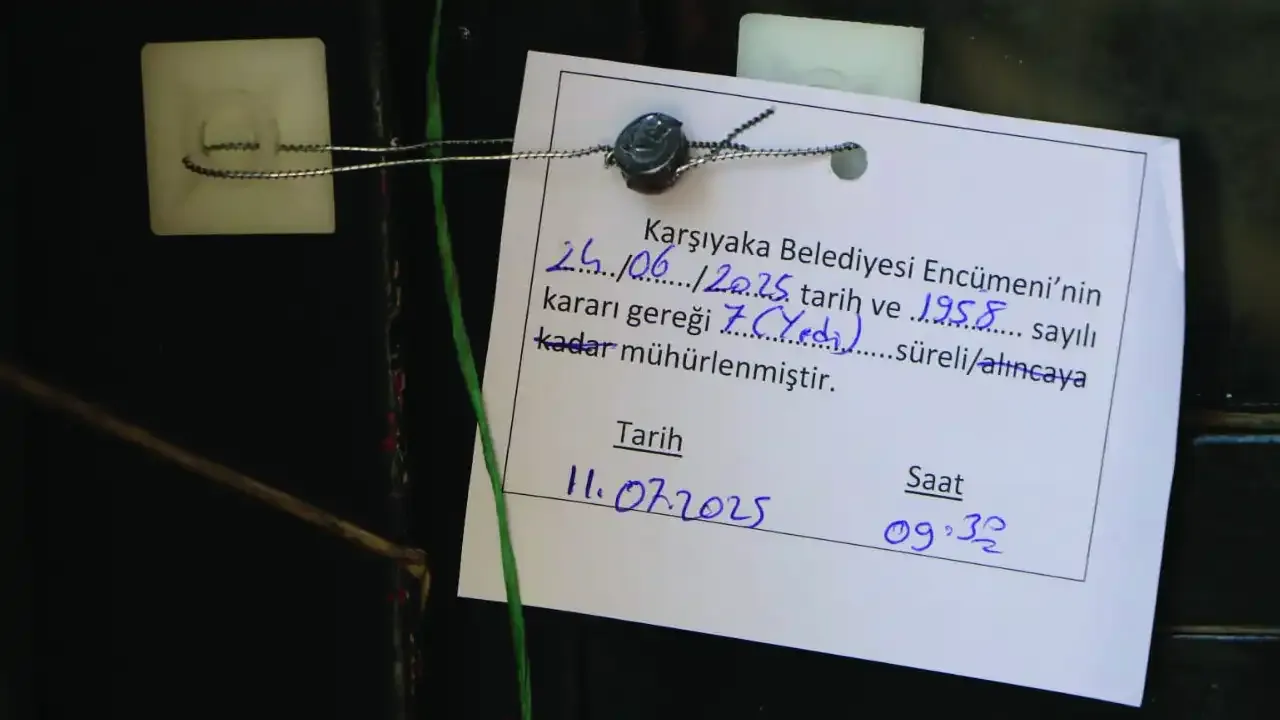 Karşıyaka Belediyesi Encümeni'nin
24...../06....../2025 tarih ve .1958... sayılı
kararı gereği 7 (Yedi).....süreli/alıncaya
kadar mühürlenmiştir.
Tarih
Saat
11.07.2025
09:30